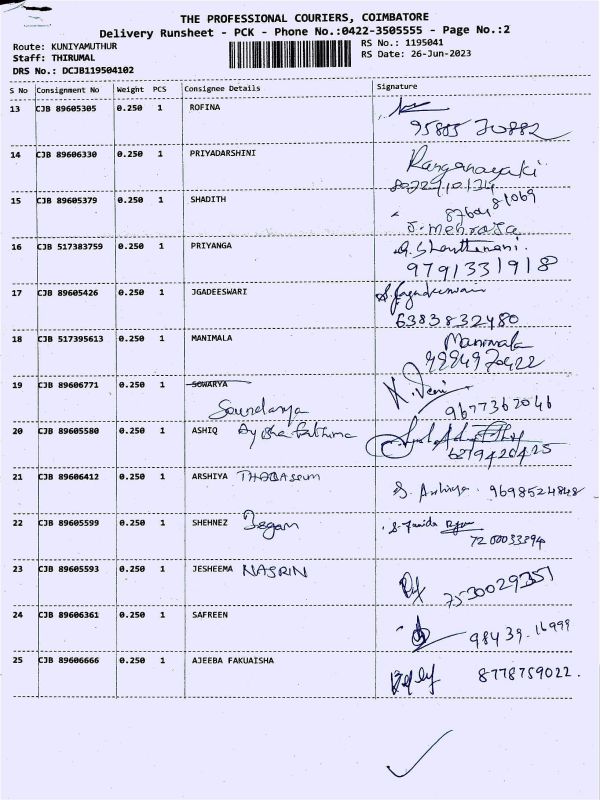 THE PROFESSIONAL COURIERS, COIMBATORE
Delivery Runsheet - PCK - Phone No.:0422-3505555 - Page No.:2
Route: KUNIYAMUTHUR
RS No.: 1195041
Staff: THIRUMAL
RS Date: 26-Jun-2023
DRS No.: DCJB119504102
S No Consignment No Weight PCS Consignee Details Signature
13 CJB 89605305 0.250 1 ROFINA
14 CJB 89606330 0.250 1 PRIYADARSHINI Ranganayaki
15 CJB 89605379 0.250 1 SHADITH
J. mehraja
16 CJB 517383759 0.250 1 PRIYANGA
9791331918
17 CJB 89605426 0.250 1 JGADEESWARI
6383832480
18 CJB 517395613 0.250 1 MANIMALA Manimala
9994970422
19 CJB 89606771 0.250 1 SOWARYA K. Veni
Soundarya 9677362046
20 CJB 89605580 0.250 1 ASHIQ Aysha Fathima
6379420425
21 CJB 89606412 0.250 1 ARSHIYA THABASSUM
9698524848
22 CJB 89605599 0.250 1 SHEHNEZ Began
7200033394
23 CJB 89605593 0.250 1 JESHEEMA NASRIN
7530029357
24 CJB 89606361 0.250 1 SAFREEN
98439.16999
25 CJB 89606666 0.250 1 AJEEBA FAKUAISHA
8778759022.